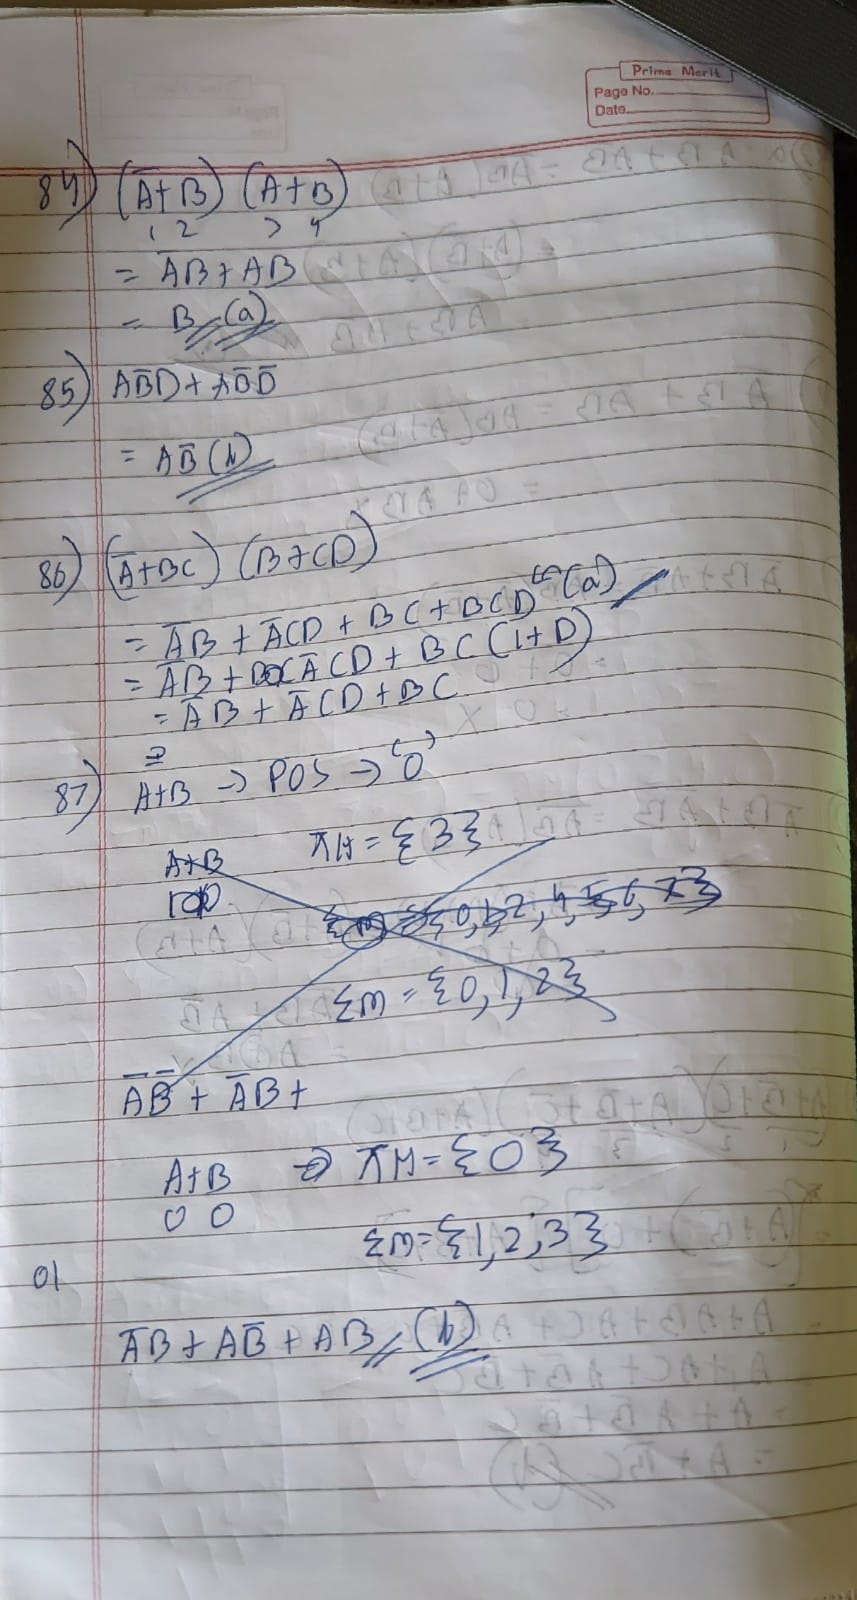 Prime Merit
Page No.
Date.
84) (A̅+B) (A+B)
1 2 3 4
= A̅B+AB
= B (a)
85) AB̅D+AB̅D̅
= AB̅ (b)
86) (A̅+BC) (B+CD)
= A̅B + A̅CD + BC + BCD (a)
= A̅B + A̅CD + BC (1+D)
= A̅B + A̅CD + BC
87) A+B → POS → 0
A+B πM = {3}
Σm = {0, 1, 2, 4, 5, 6, 7}
Σm = {0, 1, 2}
A̅B̅ + A̅B +
A+B ⇒ πM = {0}
0 0
Σm = {1, 2, 3}
01
A̅B + AB̅ + AB (b)